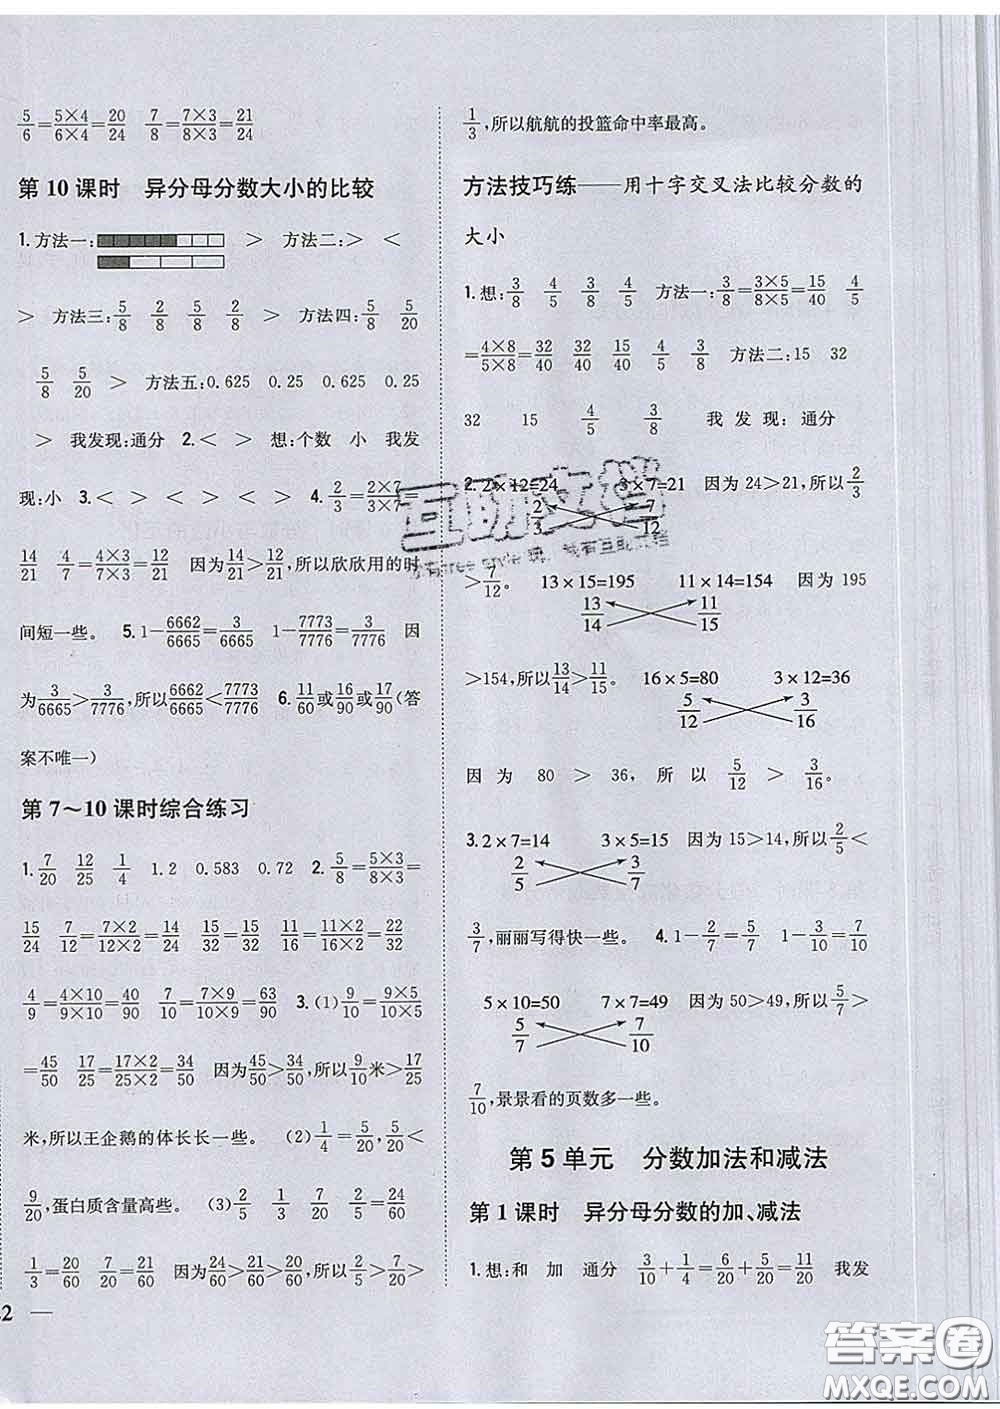 5/6=5×4/6×4=20/24 7/8=7×3/8×3=21/24
第 10 课时 异分母分数大小的比较
1. 方法一: > 方法二:> <
> 方法三:5/8 2/8 5/8 2/8 > 方法四:5/8 5/20
5/8 5/20 > 方法五:0.625 0.25 0.625 0.25
> 我发现:通分 2.< > 想:个数 小 我发
现:小 3.< > < > < > 4. 2/3=2×7/3×7=
14/21 4/7=4×3/7×3=12/21 因为14/21>12/21,所以欣欣用的时
间短一些。 5. 1-6662/6665=3/6665 1-7773/7776=3/7776 因
为3/6665>3/7776,所以6662/6665<7773/7776 6. 11/60或16/90或17/90(答
案不唯一)
第 7～10 课时综合练习
1. 7/20 12/25 1/4 1.2 0.583 0.72 2. 5/8=5×3/8×3=
15/24 7/12=7×2/12×2=14/24 15/32=15/32 11/16=11×2/16×2=22/32
4/9=4×10/9×10=40/90 7/10=7×9/10×9=63/90 3.(1)9/10=9×5/10×5
=45/50 17/25=17×2/25×2=34/50 因为45/50>34/50,所以9/10米>17/25
米,所以王企鹅的体长长一些。 (2)1/4=5/20,5/20<
9/20,蛋白质含量高些。 (3)2/5 1/3 7/20 2/5=24/60
1/3=20/60 7/20=21/60 因为24/60>21/60>20/60,所以2/5>7/20>
1/3,所以航航的投篮命中率最高。
方法技巧练——用十字交叉法比较分数的
大小
1.想:3/8 4/5 3/8 4/5 方法一:3/8=3×5/8×5=15/40 4/5
=4×8/5×8=32/40 32/40 15/40 4/5 3/8 方法二:15 32
32 15 4/5 3/8 我发现:通分
2. 2×12=24 3×7=21 因为24>21,所以2/3
2/3 7/12
>7/12。 13×15=195 11×14=154 因为195
13/14 11/15
>154,所以13/14>11/15。 16×5=80 3×12=36
5/12 3/16
因为 80 > 36, 所以 5/12 > 3/16。
3. 2×7=14 3×5=15 因为15>14,所以2/5<
2/5 3/7
3/7,丽丽写得快一些。 4. 1-2/7=5/7 1-3/10=7/10
5×10=50 7×7=49 因为50>49,所以5/7>
5/7 7/10
7/10,景景看的页数多一些。
第 5 单元 分数加法和减法
第 1 课时 异分母分数的加、减法
1. 想:和 加 通分 3/10+1/4=6/20+5/20=11/20 我发
2 —
互助文档
答案圈
MXQE.COM